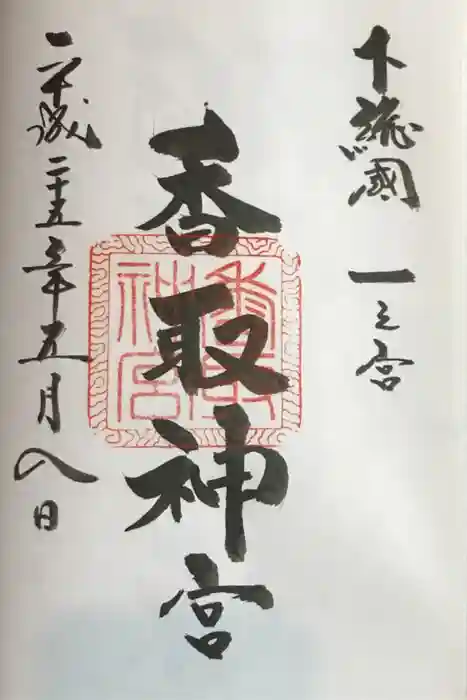 下総國 一之宮
香取神宮
香取
神宮
平成二十五年五月八日